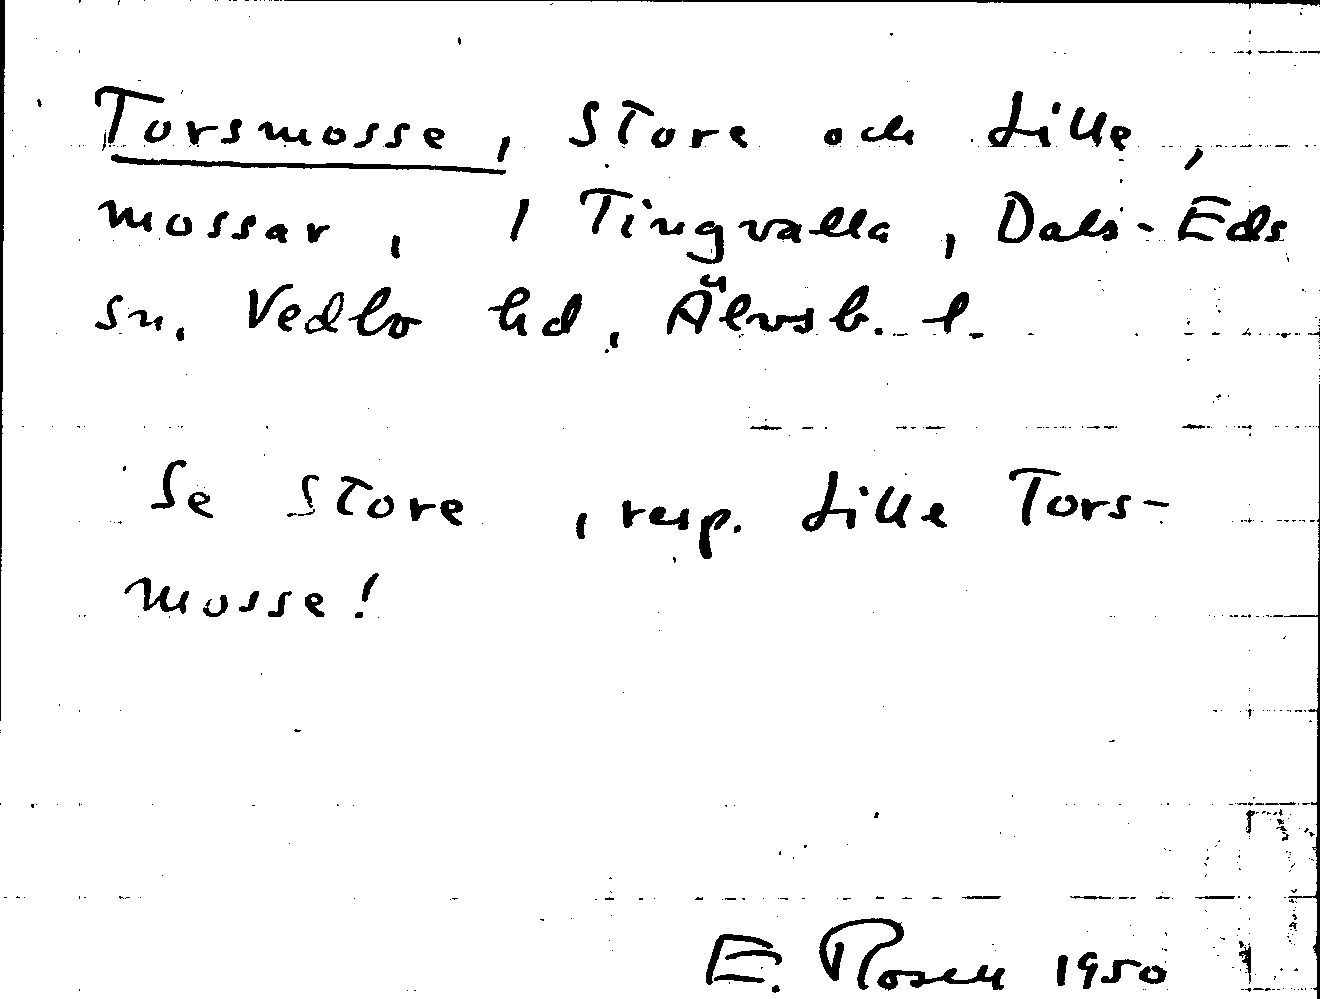 Torsmosse, Store och Lille,
mossar, / Tingvalla, Dals-Eds
sn, Vedbo hd, Älvsb. l.
Se Store, resp. Lille Tors-
mosse!
E. Rosell 1950